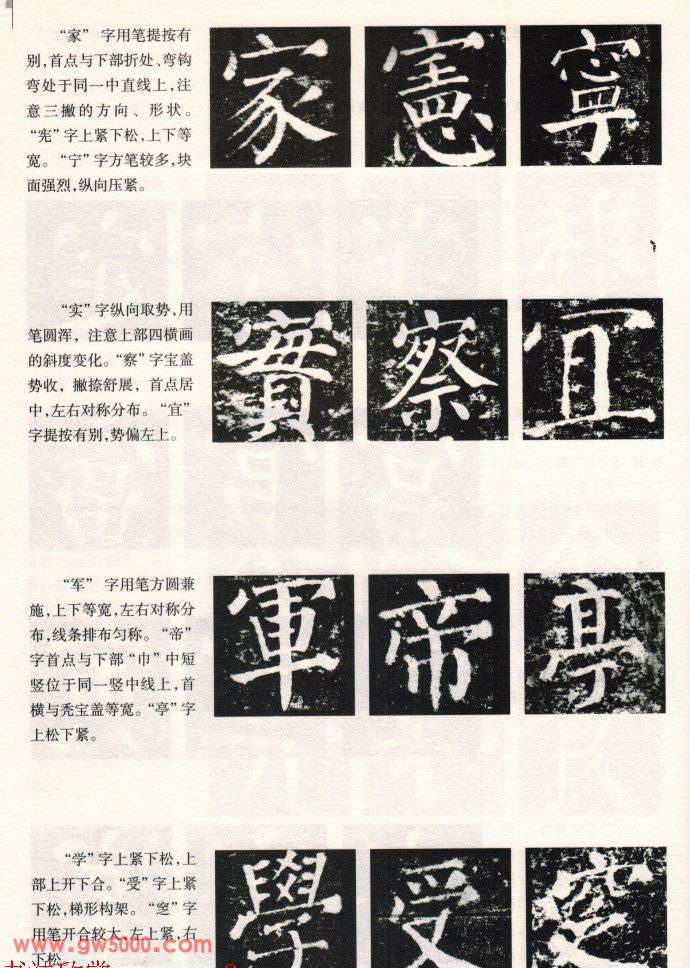 “家” 字用笔提按有
别,首点与下部折处、弯钩
弯处于同一中直线上,注
意三撇的方向、形状。
“宪”字上紧下松,上下等
宽。“宁”字方笔较多,块
面强烈,纵向压紧。
家 憲 寧
“实”字纵向取势,用
笔圆浑, 注意上部四横画
的斜度变化。“察”字宝盖
势收, 撇捺舒展, 首点居
中,左右对称分布。“宜”
字提按有别,势偏左上。
實 察 宜
“军” 字用笔方圆兼
施,上下等宽,左右对称分
布,线条排布匀称。“帝”
字首点与下部“巾”中短
竖位于同一竖中线上,首
横与秃宝盖等宽。“亭”字
上松下紧。
軍 帝 亭
“学”字上紧下松,上
部上开下合。“受”字上紧
下松,梯形构架。“窆”字
用笔开合较大,左上紧,右
下松。
學 受
www.gw5000.com